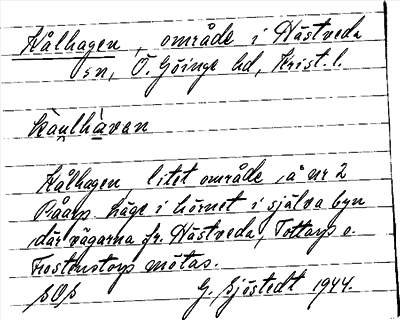 Kålhagen, område i Hästveda
sn, Ö. Göinge hd, Krist. l.
kàu̯lhàvan
Kålhagen, litet område å nr 2
Råarp häge i hörnet i själva byn
där vägarna fr. Hästveda, Tottarp o.
Frostentorp mötas.
G. Sjöstedt 1944.